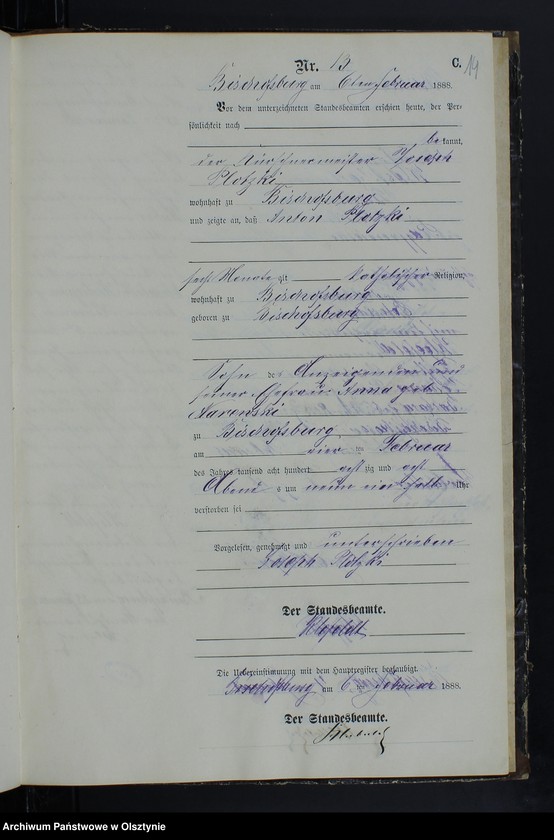 Nr. 13 C. 14
Bischofsburg am 6ten Februar 1888.
Vor dem unterzeichneten Standesbeamten erschien heute, der Per-
sönlichkeit nach
bekannt,
der Kürschnermeister Joseph
Plotzki
wohnhaft zu Bischofsburg
und zeigte an, daß Anton Plotzki
sechs Monate alt Katholischer Religion,
wohnhaft zu Bischofsburg
geboren zu Bischofsburg
Sohn des Anzeigenden und
seiner Ehefrau Anna geb.
zu Bischofsburg,
am vier ten Februar
des Jahres tausend acht hundert acht zig und acht
Abend s um neun ein halb Uhr
verstorben sei
Vorgelesen, genehmigt und unterschrieben
Joseph Plotzki
Der Standesbeamte.
Die Uebereinstimmung mit dem Hauptregister beglaubigt.
Bischofsburg am 6 ten Februar 1888.
Der Standesbeamte.
Archiwum Państwowe w Olsztynie